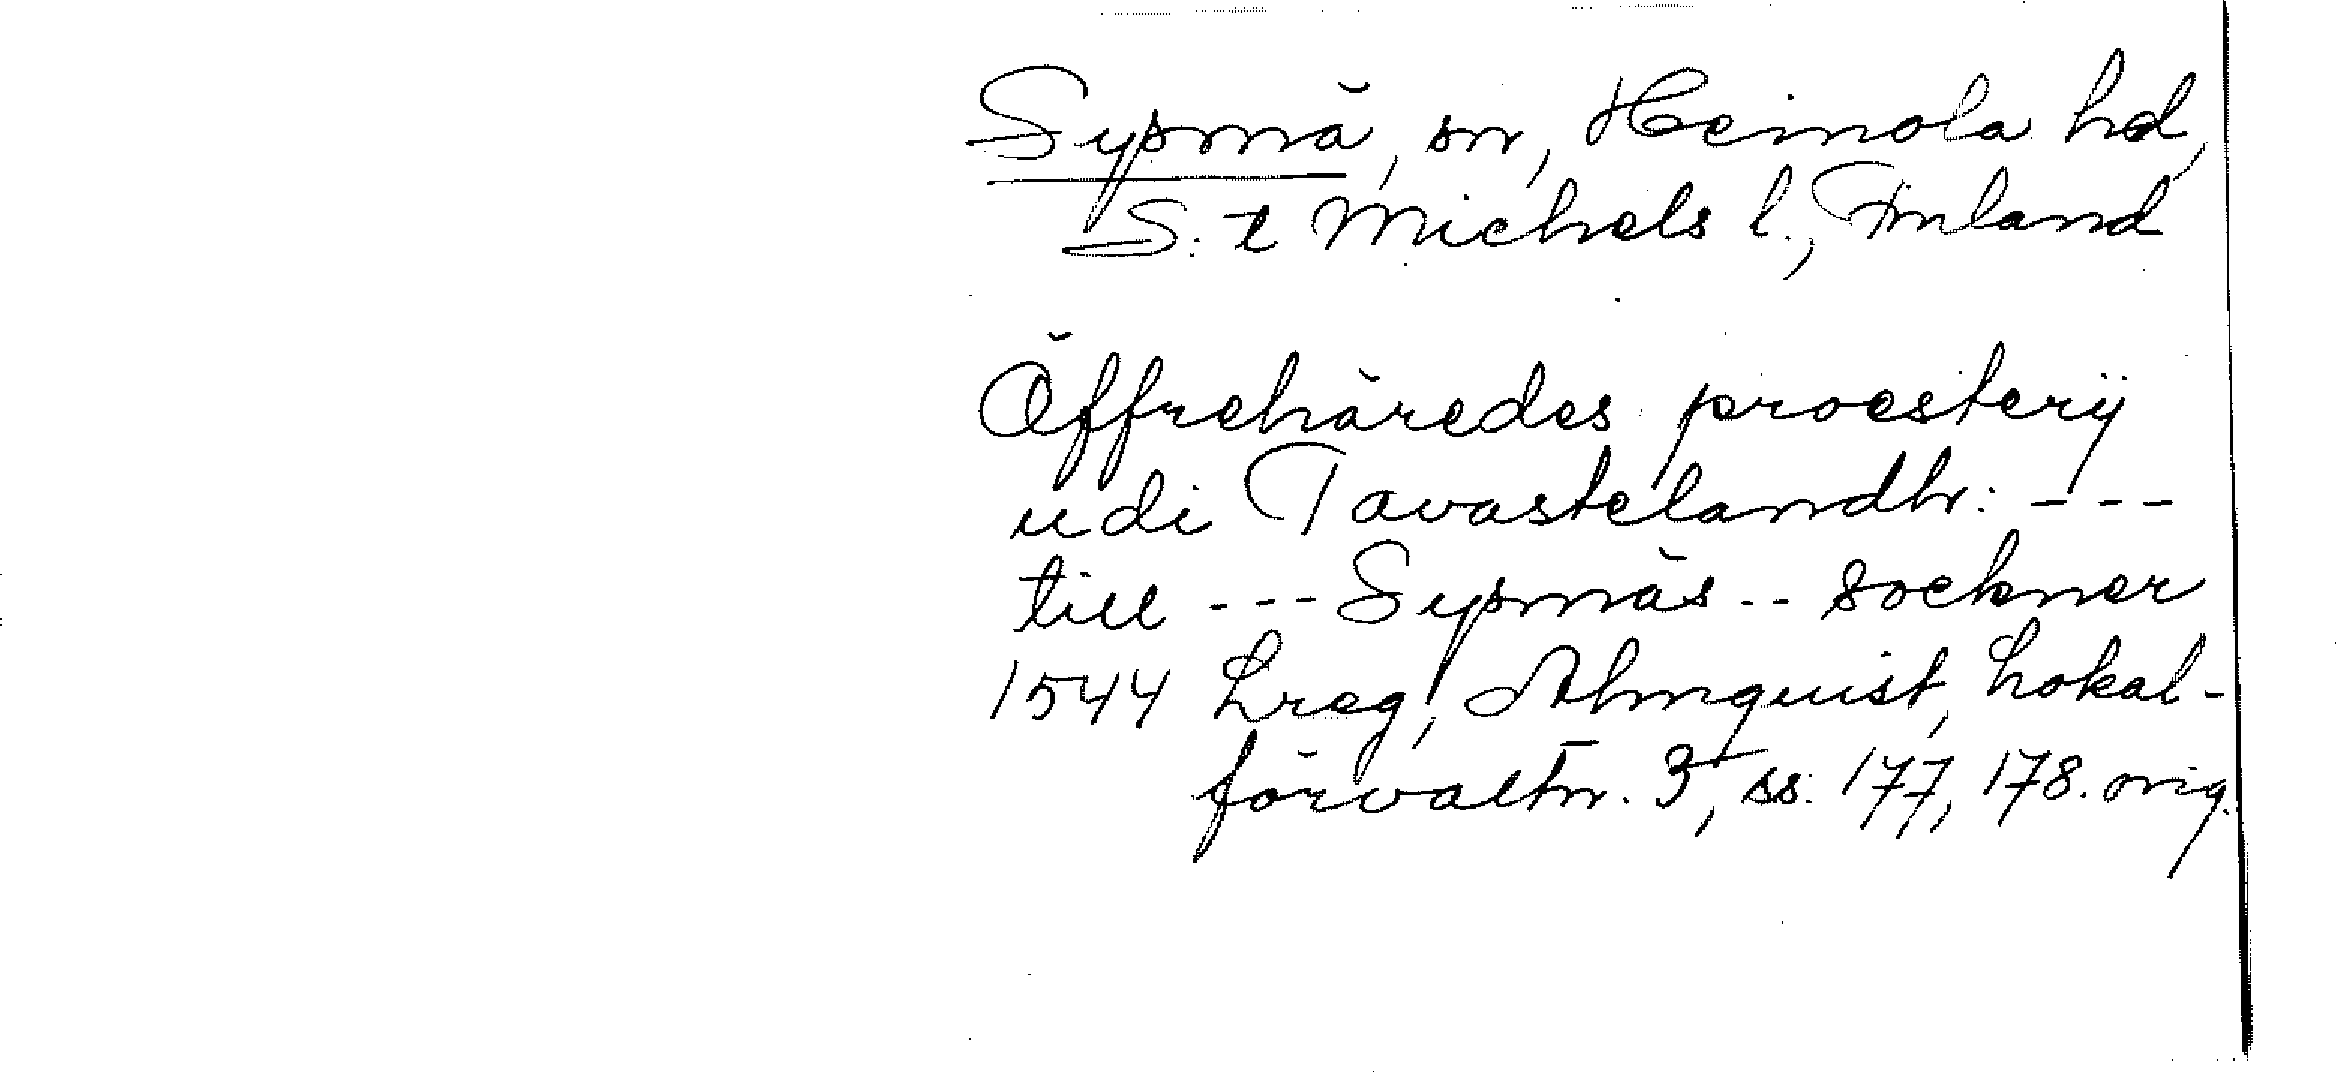 Sysmä, sn, Heinola hd,
S:t Michels l., Finland
Öffrehäredes proesterij
udi Tavastelandh: ---
till --- Sysmäs -- sockner
1544 Lreg, Almquist, Lokal-
förvaltn. 3, ss. 177, 178. orig.